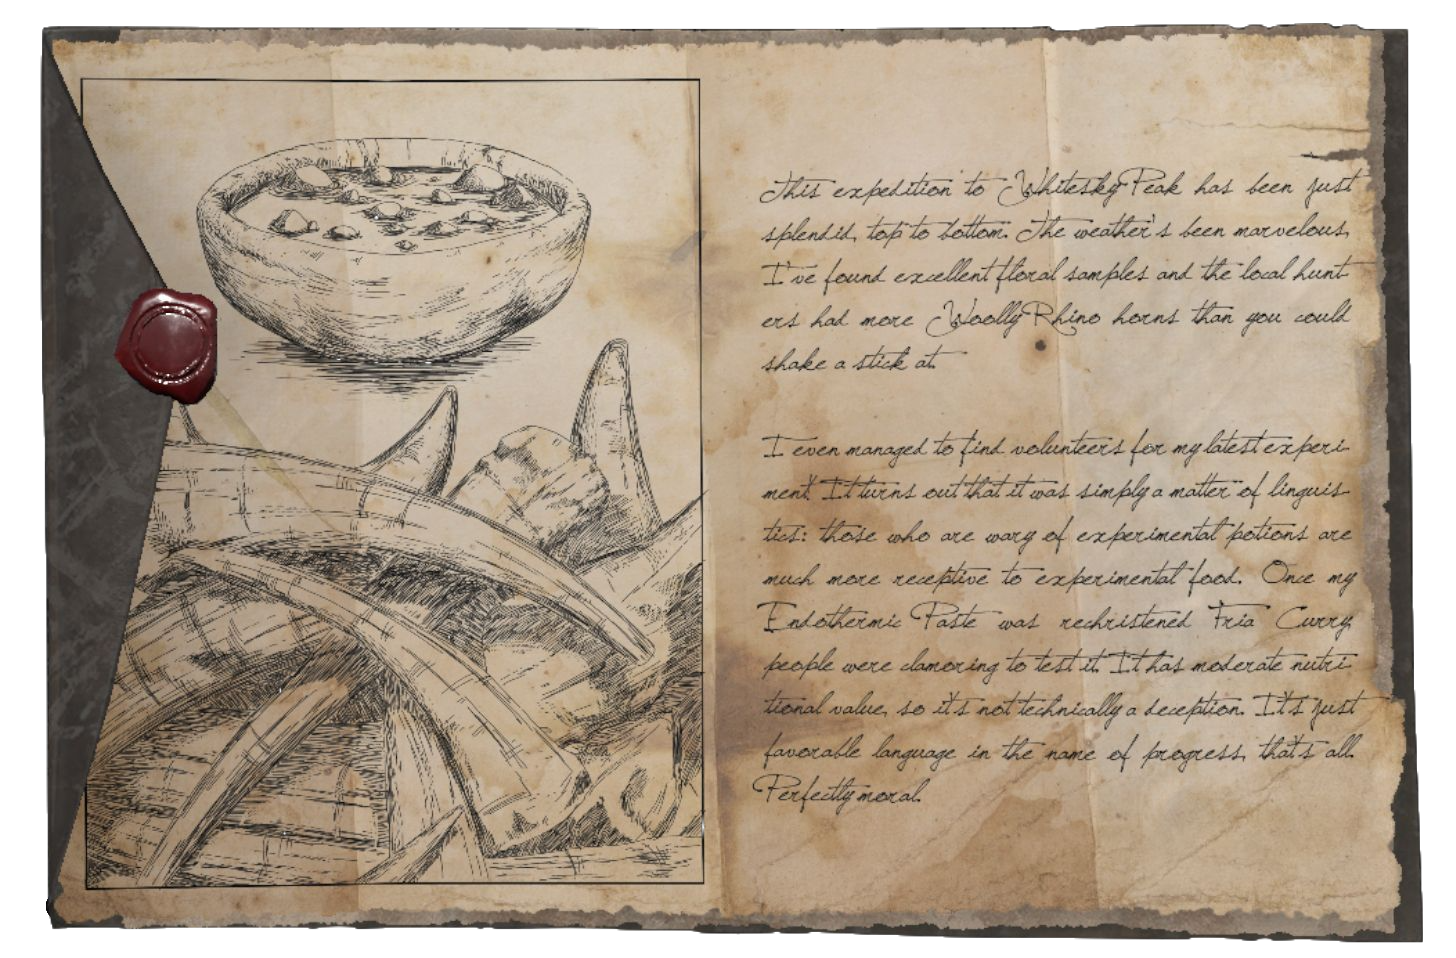 This expedition to Whitesky Peak has been just
splendid, top to bottom. The weather's been marvelous,
I've found excellent floral samples and the local hunt-
ers had more Woolly Rhino horns than you could
shake a stick at.
I even managed to find volunteers for my latest experi-
ment! It turns out that it was simply a matter of linguis-
tics: those who are wary of experimental potions are
much more receptive to experimental food. Once my
Endothermic Paste was rechristened Fria Curry,
people were clamoring to test it. It has moderate nutri-
tional value, so it's not technically a deception. It's just
favorable language in the name of progress, that's all.
Perfectly moral.